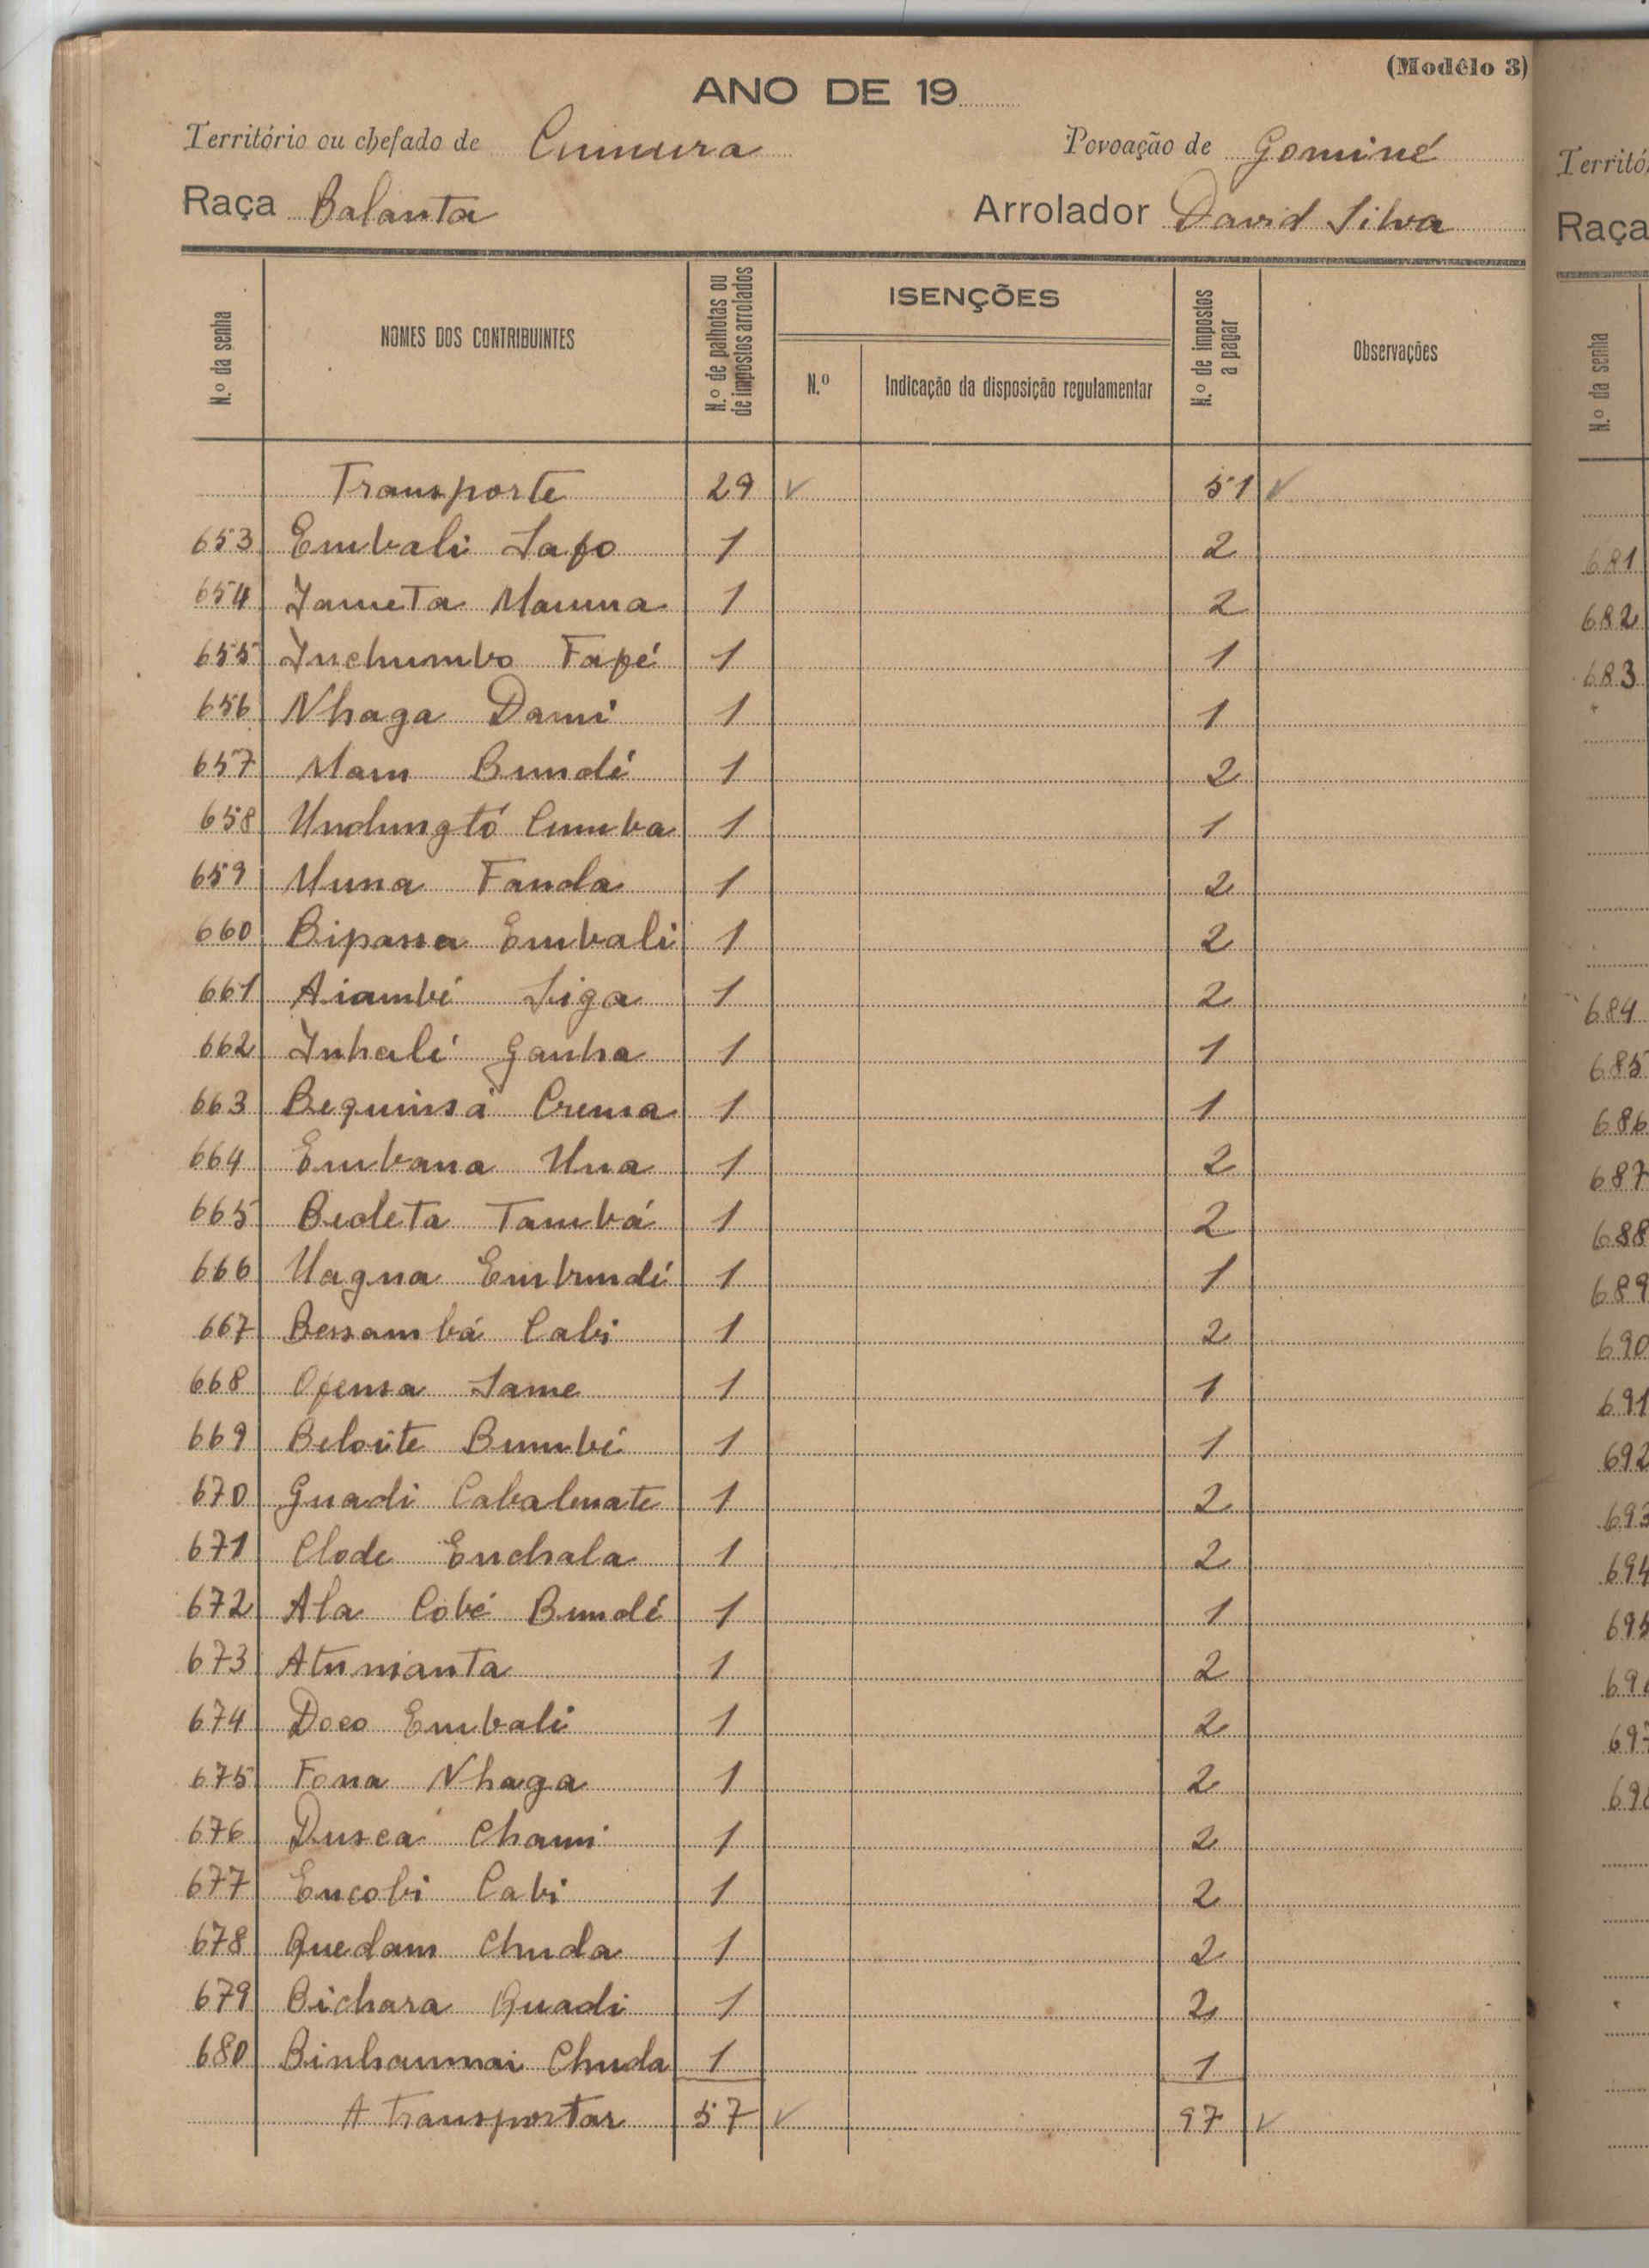 (Modêlo 3)
ANO DE 19
Território ou chefado de Cumura Povoação de Gominé
Raça Balanta Arrolador David Silva
N.º da senha NOMES DOS CONTRIBUINTES N.º de palhotas ou de impostos arrolados ISENÇÕES N.º Indicação da disposição regulamentar N.º de impostos a pagar Observações
Transporte 29 ✓ 51 ✓
653 Embali Safo 1 2
654 Jameta Mamna 1 2
655 Inchumbo Fapé 1 1
656 Nhaga Dami 1 1
657 Mam Bundé 1 2
658 Undungtó Cumba 1 1
659 Muna Fanda 1 2
660 Bipassa Embali 1 2
661 Aiambé Siga 1 2
662 Inhalé Ganha 1 1
663 Bequinsá Crensa 1 1
664 Embana Una 1 2
665 Bedeta Tambá 1 2
666 Uagna Embundé 1 1
667 Bessambá Cabi 1 2
668 Ofensa Same 1 1
669 Beloite Bumbé 1 1
670 Guadi Cabalnate 1 2
671 Clode Enchala 1 2
672 Ala Cobé Bundé 1 1
673 Atunianta 1 2
674 Doco Embali 1 2
675 Fona Nhaga 1 2
676 Duscá Chami 1 2
677 Encobi Cabi 1 2
678 Quedam Chuda 1 2
679 Bichara Quadi 1 2
680 Binhanmai Chuda 1 1
A transportar 57 ✓ 97 ✓
Raça
N.º da senha
681
682
683
684
685
686
687
688
689
690
691
692
693
694
695